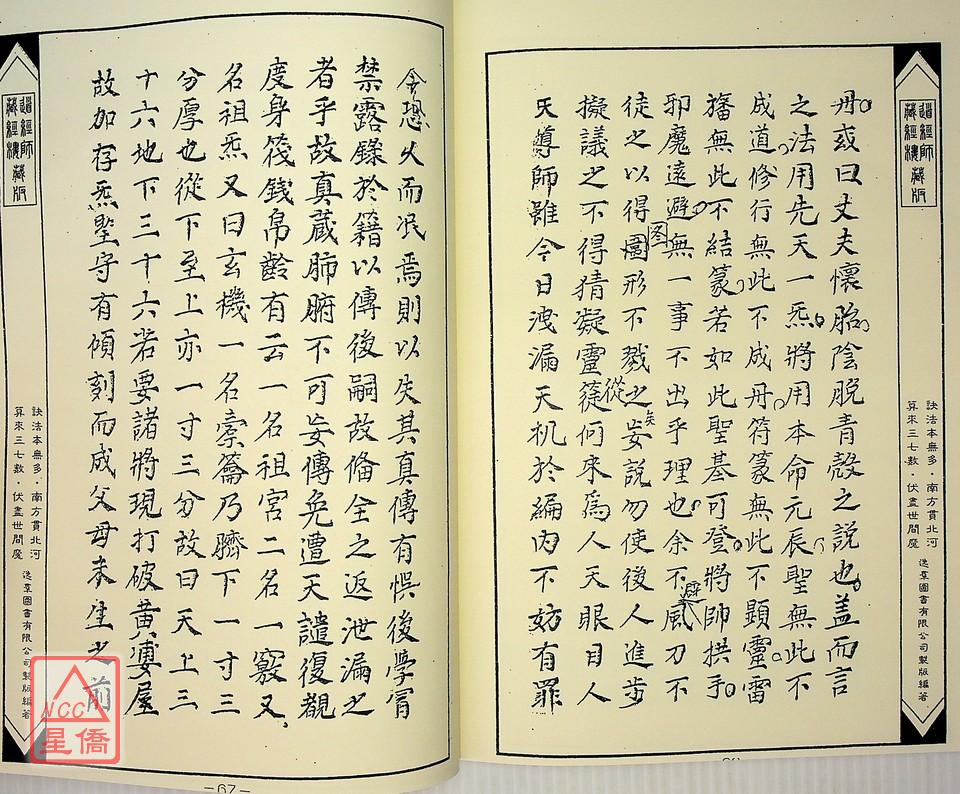 丹或曰丈夫懷胎陰脫青殼之說也盖而言
之法用先天一炁將用本命元辰聖無此不
成道修行無此不成丹符篆無此不顯靈雷
旛無此不結篆若如此聖基可登將帥拱手
邪魔遠避無一事不出乎理也余不避風刀不
徒之以得圖形不戮之妄說勿使後人進步
图
從
矣
擬議之不得猜凝靈簁何來為人天眼目人
天導師雖今日洩漏天机於編內不妨有罪
令恐久而泯焉則以失其真傳有悞後學冐
禁露錄於籍以傳後嗣故俻全之返泄漏之
者乎故真藏肺腑不可妄傳免遭天譴復觀
度身筏錢帛齡有云一名祖宮二名一竅又
名祖炁又曰玄機一名橐籥乃臍下一寸三
分厚也從下至上亦一寸三分故曰天上三
十六地下三十六若要諸將現打破黄婆屋
故加存炁堅守有傾刻而成父母未生之前
道經師
藏經樓藏版
訣法本無多·南方貫北河
算來三七數·伏盡世間魔
逸羣圖書有限公司製版編著
道經師
藏經樓藏版
訣法本無多·南方貫北河
算來三七數·伏盡世間魔
逸羣圖書有限公司製版編著
—67—
NCC
星僑